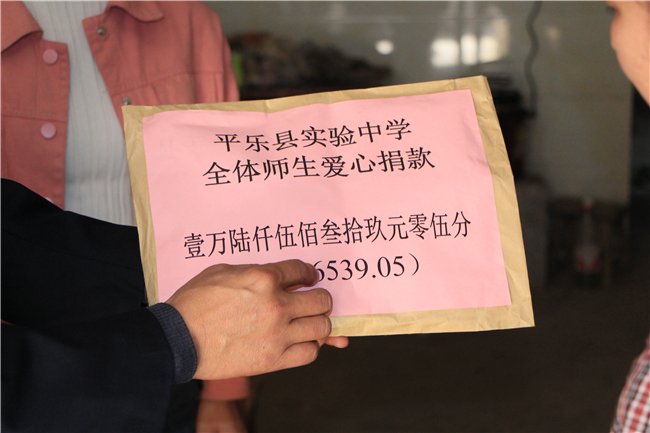 平乐县实验中学
全体师生爱心捐款
壹万陆仟伍佰叁拾玖元零伍分
6539.05）